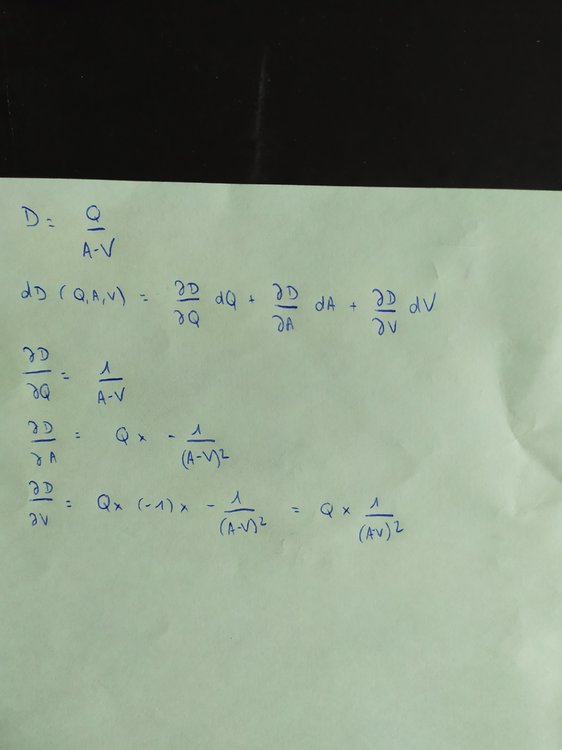 D = Q / A-V
dD (Q,A,V) = ∂D/∂Q dQ + ∂D/∂A dA + ∂D/∂V dV
∂D/∂Q = 1 / A-V
∂D/∂A = Q × - 1 / (A-V)²
∂D/∂V = Q × (-1) × - 1 / (A-V)² = Q × 1 / (A-V)²